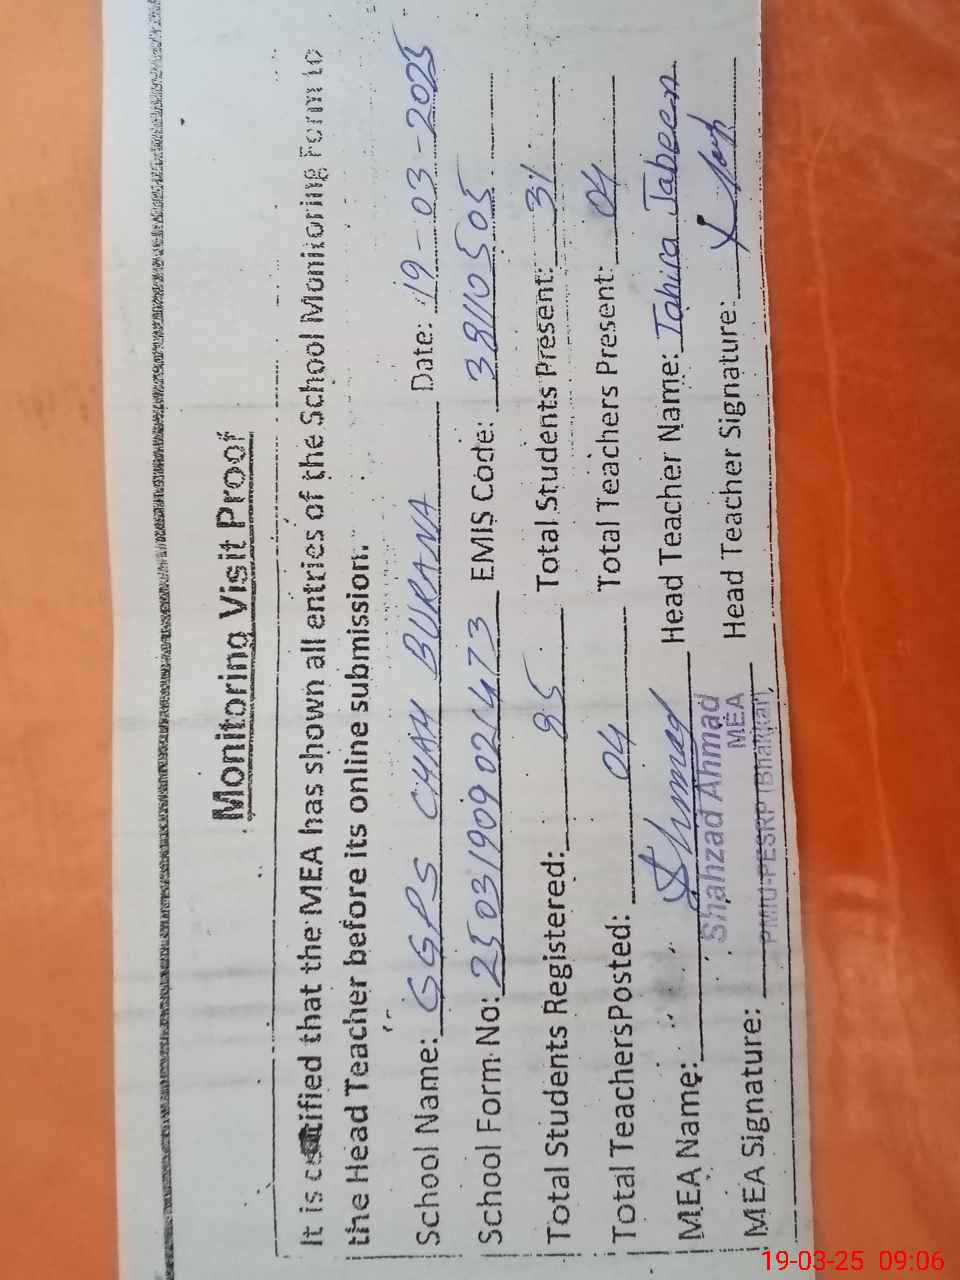 Monitoring Visit Proof
It is certified that the MEA has shown all entries of the School Monitoring Form to
the Head Teacher before its online submission."
School Name: GGPS CHAH BURANA Date: 19-03-2025
School Form No: 25031909021473 EMIS Code: 38110505
Total Students Registered: 85 Total Students Present:
Total TeachersPosted: 04 Total Teachers Present: 04
MEA Name: Head Teacher Name: Tahira Jabeen
Shahzad Ahmad
MEA
MEA Signature: PMIU-PESRP (Bhakkar) Head Teacher Signature:
19-03-25 09:06